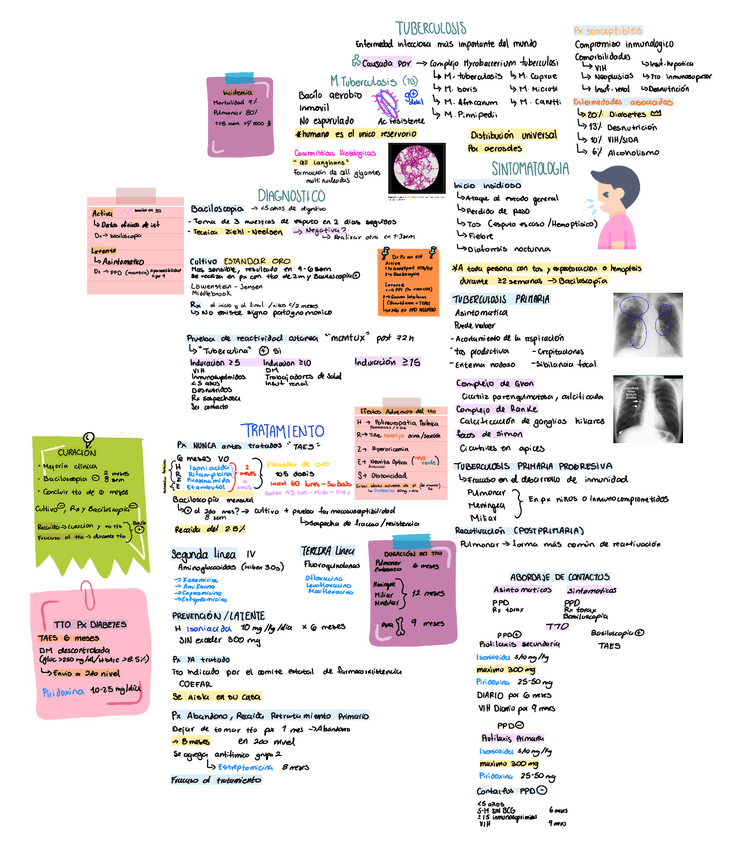 TUBERCULOSIS
Enfermedad infecciosa más importante del mundo
Causada por → Complejo Mycobacterium tuberculosi
↳ M. tuberculosis ↳ M. Caprae
↳ M. bovis ↳ M. Microti
↳ M. Africanum ↳ M. Canetti
↳ M. Pinnipedi
M. Tuberculosis (TB)
Bacilo aerobio
Inmovil
No esporulado
Ac. resistente
*humano es el unico reservorio
Distribución universal
Por aerosoles
Caracteristicas Histologicas
"Cell Langhans"
Formación de cell gigantes
multinucleadas
Incidencia
Mortalidad 9%
Pulmonar 80%
Px susceptibles
Compromiso inmunologico
Comorbilidades
↳ VIH
↳ Neoplasias
↳ Insuf. renal
↳ Insuf. hepatica
↳ Tto inmunosupresor
↳ Desnutrición
Enfermedades asociadas
↳ 20% Diabetes
↳ 13% Desnutrición
↳ 10% VIH/SIDA
↳ 6% Alcoholismo
SINTOMATOLOGIA
Inicio insidioso
↳ Ataque al estado general
↳ Perdida de peso
↳ Tos (Esputo escaso/Hemoptisico)
↳ Fiebre
↳ Diaforesis nocturna
*A toda persona con tos y expectoracion o hemoptisis
durante ≥2 semanas → Baciloscopia
DIAGNOSTICO
Baciloscopia
- Toma de 3 muestras de esputo en 2 dias seguidos
- Tecnica Ziehl-Neelsen → Negativa?
↳ Realizar otra en 1-3 sem
Cultivo ESTANDAR ORO
Mas sensible, resultado en 4-6 sem
Se realiza en px con tto de 2m y Baciloscopia⊕
Löwenstein-Jensen
Middlebrook
Rx al inicio y al final
↳ No existe signo patognomonico
Prueba de reactividad cutanea "mantux" post 72h
↳ "Tuberculina" ⊕ Si
Induracion ≥5
VIH
Inmunosuprimidos
<5 años
Desnutridos
Rx sospechosa
Ser contacto
Induracion ≥10
DM
Trabajadores de salud
Insuf renal
Induración ≥15
Activa
↳ Datos clinicos de inf
Dx → baciloscopia
Latente
↳ Asintomatico
Dx → PPD (mantux)
Dx Px con VIH
Activa
Latente
TUBERCULOSIS PRIMARIA
Asintomatica
Puede haber
- Acortamiento de la respiración
- tos productiva - Crepitaciones
- Eritema nodoso - Sibilancia focal
Complejo de Ghon
Cicatriz parenquimatosa, calcificada
Complejo de Ranke
Calcificación de ganglios hiliares
focos de Simon
Cicatrices en apices
TUBERCULOSIS PRIMARIA PROGRESIVA
↳ Fracaso en el desarrollo de inmunidad
Pulmonar
Meningea
Miliar
En px niños o inmunocomprometidos
Reactivación (POSTPRIMARIA)
Pulmonar → forma más común de reactivación
TRATAMIENTO
Px NUNCA antes tratados "TAES"
6 meses VO
H Isoniacida
R Rifampicina
Z Pirazinamida
E Etambutol
2 meses
4 meses
Estandar de oro
105 dosis
Inicial 60 Lunes-Sabado
Sostén 45 Lun-Mier-Vier
Baciloscopia mensual
↳ ⊕ al 2do mes? → cultivo + prueba farmacosusceptibilidad
8 sem
↳ Sospecha de fracaso/resistencia
Recaida del 2.5%
Efectos Adversos del tto
H → Polineuropatia Toxica
R → TAE naranja orina/sudoración
Z → Hiperuricemia
E → Neuritis Optica
S → Ototoxicidad
CURACIÓN
- Mejoria clinica
- Baciloscopia ⊖ 2 meses
8 sem
- Concluir tto de 6 meses
Cultivo⊖, Rx y Baciloscopia⊖
Recaida → curacion y no tto
Fracaso al tto → durante tto
Bacilo⊕
TTO PX DIABETES
TAES 6 meses
DM descontrolada
(gluc >250 mg/dl/HbA1c >8.5%)
↳ Envio a 2do nivel
Piridoxina 10-25 mg/dia
Segunda linea IV
Aminoglucosidos (Inhiben 30s)
→ Kanamicina
→ Amikacina
→ Capreomicina
→ Estreptomicina
TERCERA Linea
Fluoroquinolonas
Ofloxacino
Levofloxacino
Moxifloxacino
DURACIÓN DEL TTO
Pulmonar 6 meses
Meningea
Miliar
12 meses
9 meses
PREVENCIÓN/LATENTE
H Isoniacida 10 mg/kg/dia x 6 meses
SIN exceder 300 mg
Px YA tratado
Tto indicado por el comite estatal de farmacorresistencia
COEFAR
Se aisla en su casa
Px Abandono, Recaida Retratamiento Primario
Dejar de tomar tto por 1 mes → Abandono
→ 8 meses en 2do nivel
Se agrega antifimico grupo 2
↳ Estreptomicina 8 meses
Fracaso al tratamiento
ABORDAJE DE CONTACTOS
Asintomaticos
PPD
Rx torax
Sintomaticos
PPD
Rx torax
Baciloscopia
TTO
PPD⊕
Baciloscopia⊕
TAES
Profilaxis secundaria
Isoniazida 5/10 mg/kg
maximo 300 mg
Piridoxina 25-50 mg
DIARIO por 6 meses
VIH Diario por 9 meses
PPD⊖
Profilaxis Primaria
Isoniazida 5/10 mg/kg
maximo 300 mg
Piridoxina 25-50 mg
Contactos PPD⊖
<5 años
5-14 SIN BCG 6 meses
≥15 inmunosuprimidos
VIH 9 meses